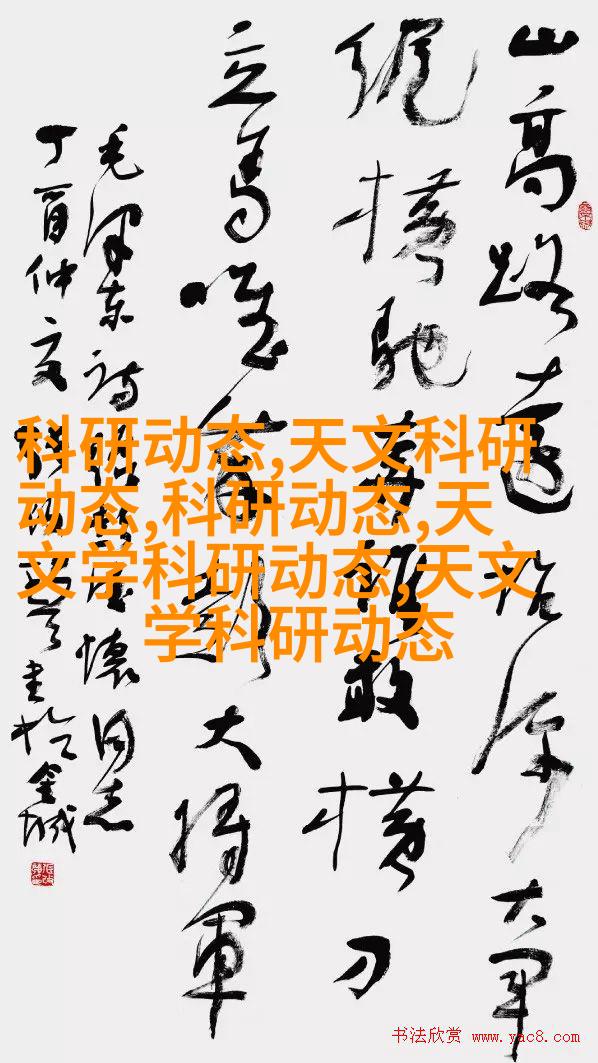 山高路遠坑深大军
縱横驰奔誰敢横刀
立马唯我彭大將軍
毛泽东诗 彭德懷同志
丁酉仲夏 书於金城
科研动态,天文科研
动态,科研动态,天
文学科研动态,天文
学科研动态
书法欣赏 www.yac8.com